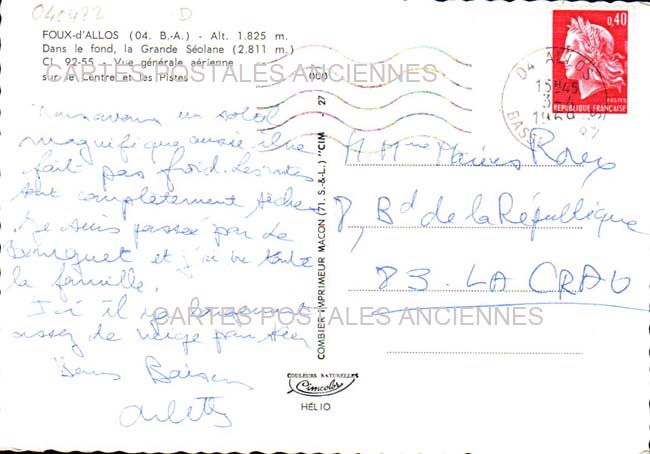 040422 D
FOUX-d'ALLOS (04. B.-A.) - Alt. 1.825 m.
Dans le fond, la Grande Séolane (2.811 m.)
CI. 92-55 - Vue générale aérienne
sur le Centre et les Pistes
CARTES POSTALES ANCIENNES
Nous avons un soleil
magnifique aussi il ne
fait pas froid. Les
sont complètement sèches
Je suis passée par Le
et j'ai vu toute
la famille.
Ici il y a
assez de neige pour skier
Bons Baisers
Arlette
COMBIER IMPRIMEUR MACON (71. S.-&-L.) "CIM" - 27
COULEURS NATURELLES
Cimcolor
HÉLIO
0,40
POSTES
RÉPUBLIQUE FRANÇAISE
04 ALLOS
15H45
BASSES
M Mme Marius Roux
8, Bd de la République
83. LA CRAU
CARTES POSTALES ANCIENNES